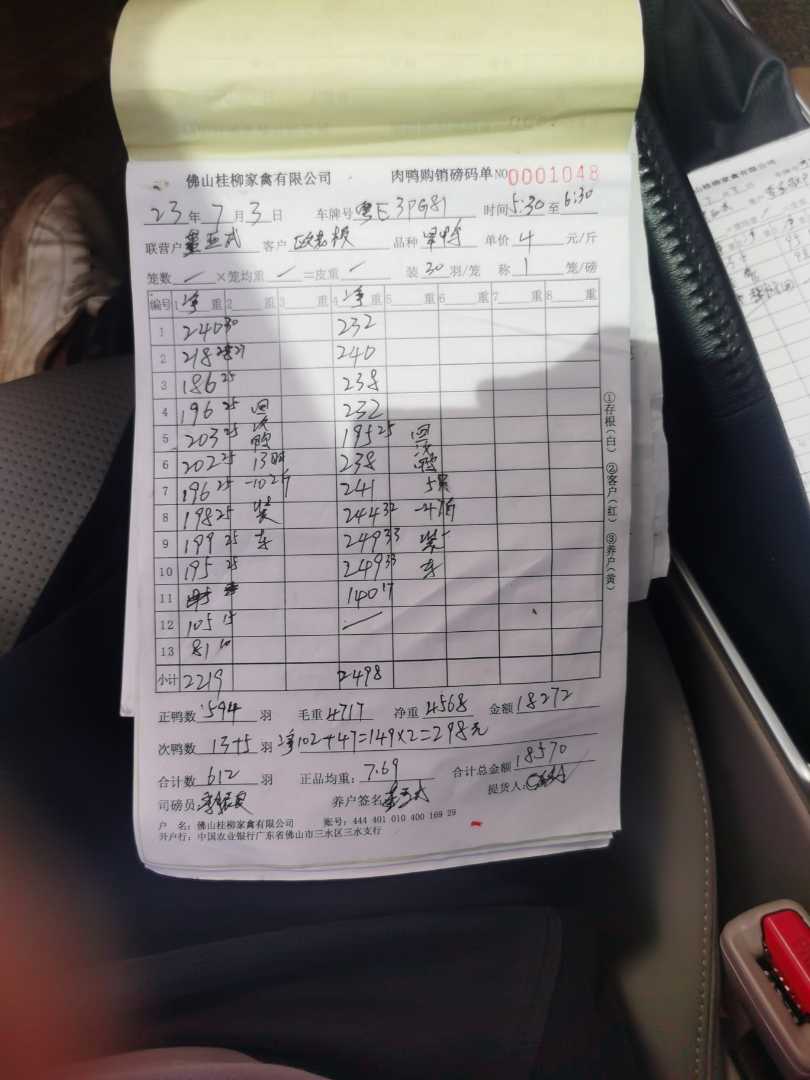 佛山桂柳家禽有限公司 肉鸭购销磅码单 NO 0001048
23年7月3日 车牌号 粤E3PG81 时间 5:30 至 6:30
联营户 客户 欧老板 品种 单价 4 元/斤
笼数 / ×笼均重 / =皮重 / 装 30 羽/笼 称 1 笼/磅
编号 1 净 重 2 重 3 重 4 净 重 5 重 6 重 7 重 8 重
1 240 30 232
2 218 27 240
3 186 25 238
4 196 25 回 232
5 203 25 次鸭 195 25 回
6 202 25 13只 238 次鸭
7 196 25 -102斤 241 5只
8 198 25 装 244 32 -47斤
9 199 25 车 249 33 装
10 195 25 249 33 车
11 140 17
12 105 15 /
13 81 10
小计 2219 2498
正鸭数 594 羽 毛重 4717 净重 4568 金额 18272
次鸭数 13+5 羽 净102+47=149×2=298元
合计数 612 羽 正品均重: 7.69 合计总金额 18570
司磅员: 养户签名 提货人:
户 名: 佛山桂柳家禽有限公司 账号: 444 401 010 400 169 29
开户行: 中国农业银行广东省佛山市三水区三水支行
①存根(白) ②客户(红) ③养户(黄)